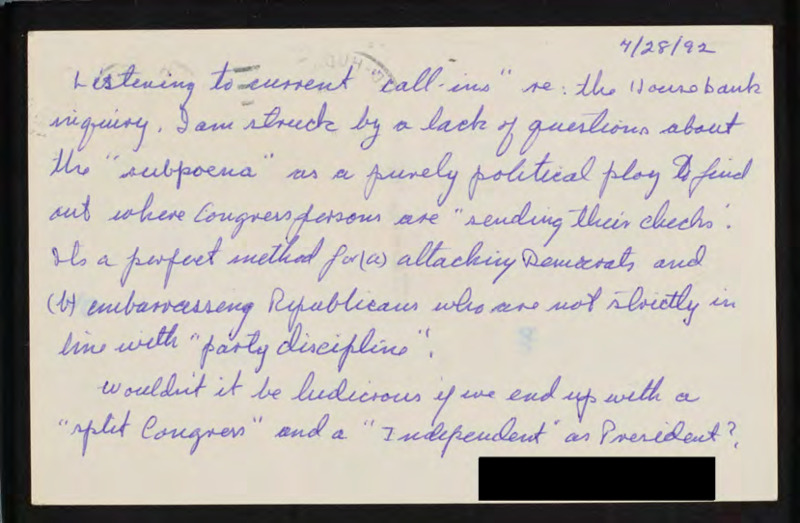 4/28/92
Listening to current "call-ins" re: the House bank
inquiry, I am struck by a lack of questions about
the "subpoena" as a purely political ploy to find
out where Congresspersons are "sending their checks".
Its a perfect method for (a) attacking Democrats and
(b) embarrasseng Republicans who are not strictly in
line with "party discipline".
Wouldn't it be ludicrous if we end up with a
"split Congress" and a "Independent" as President?.